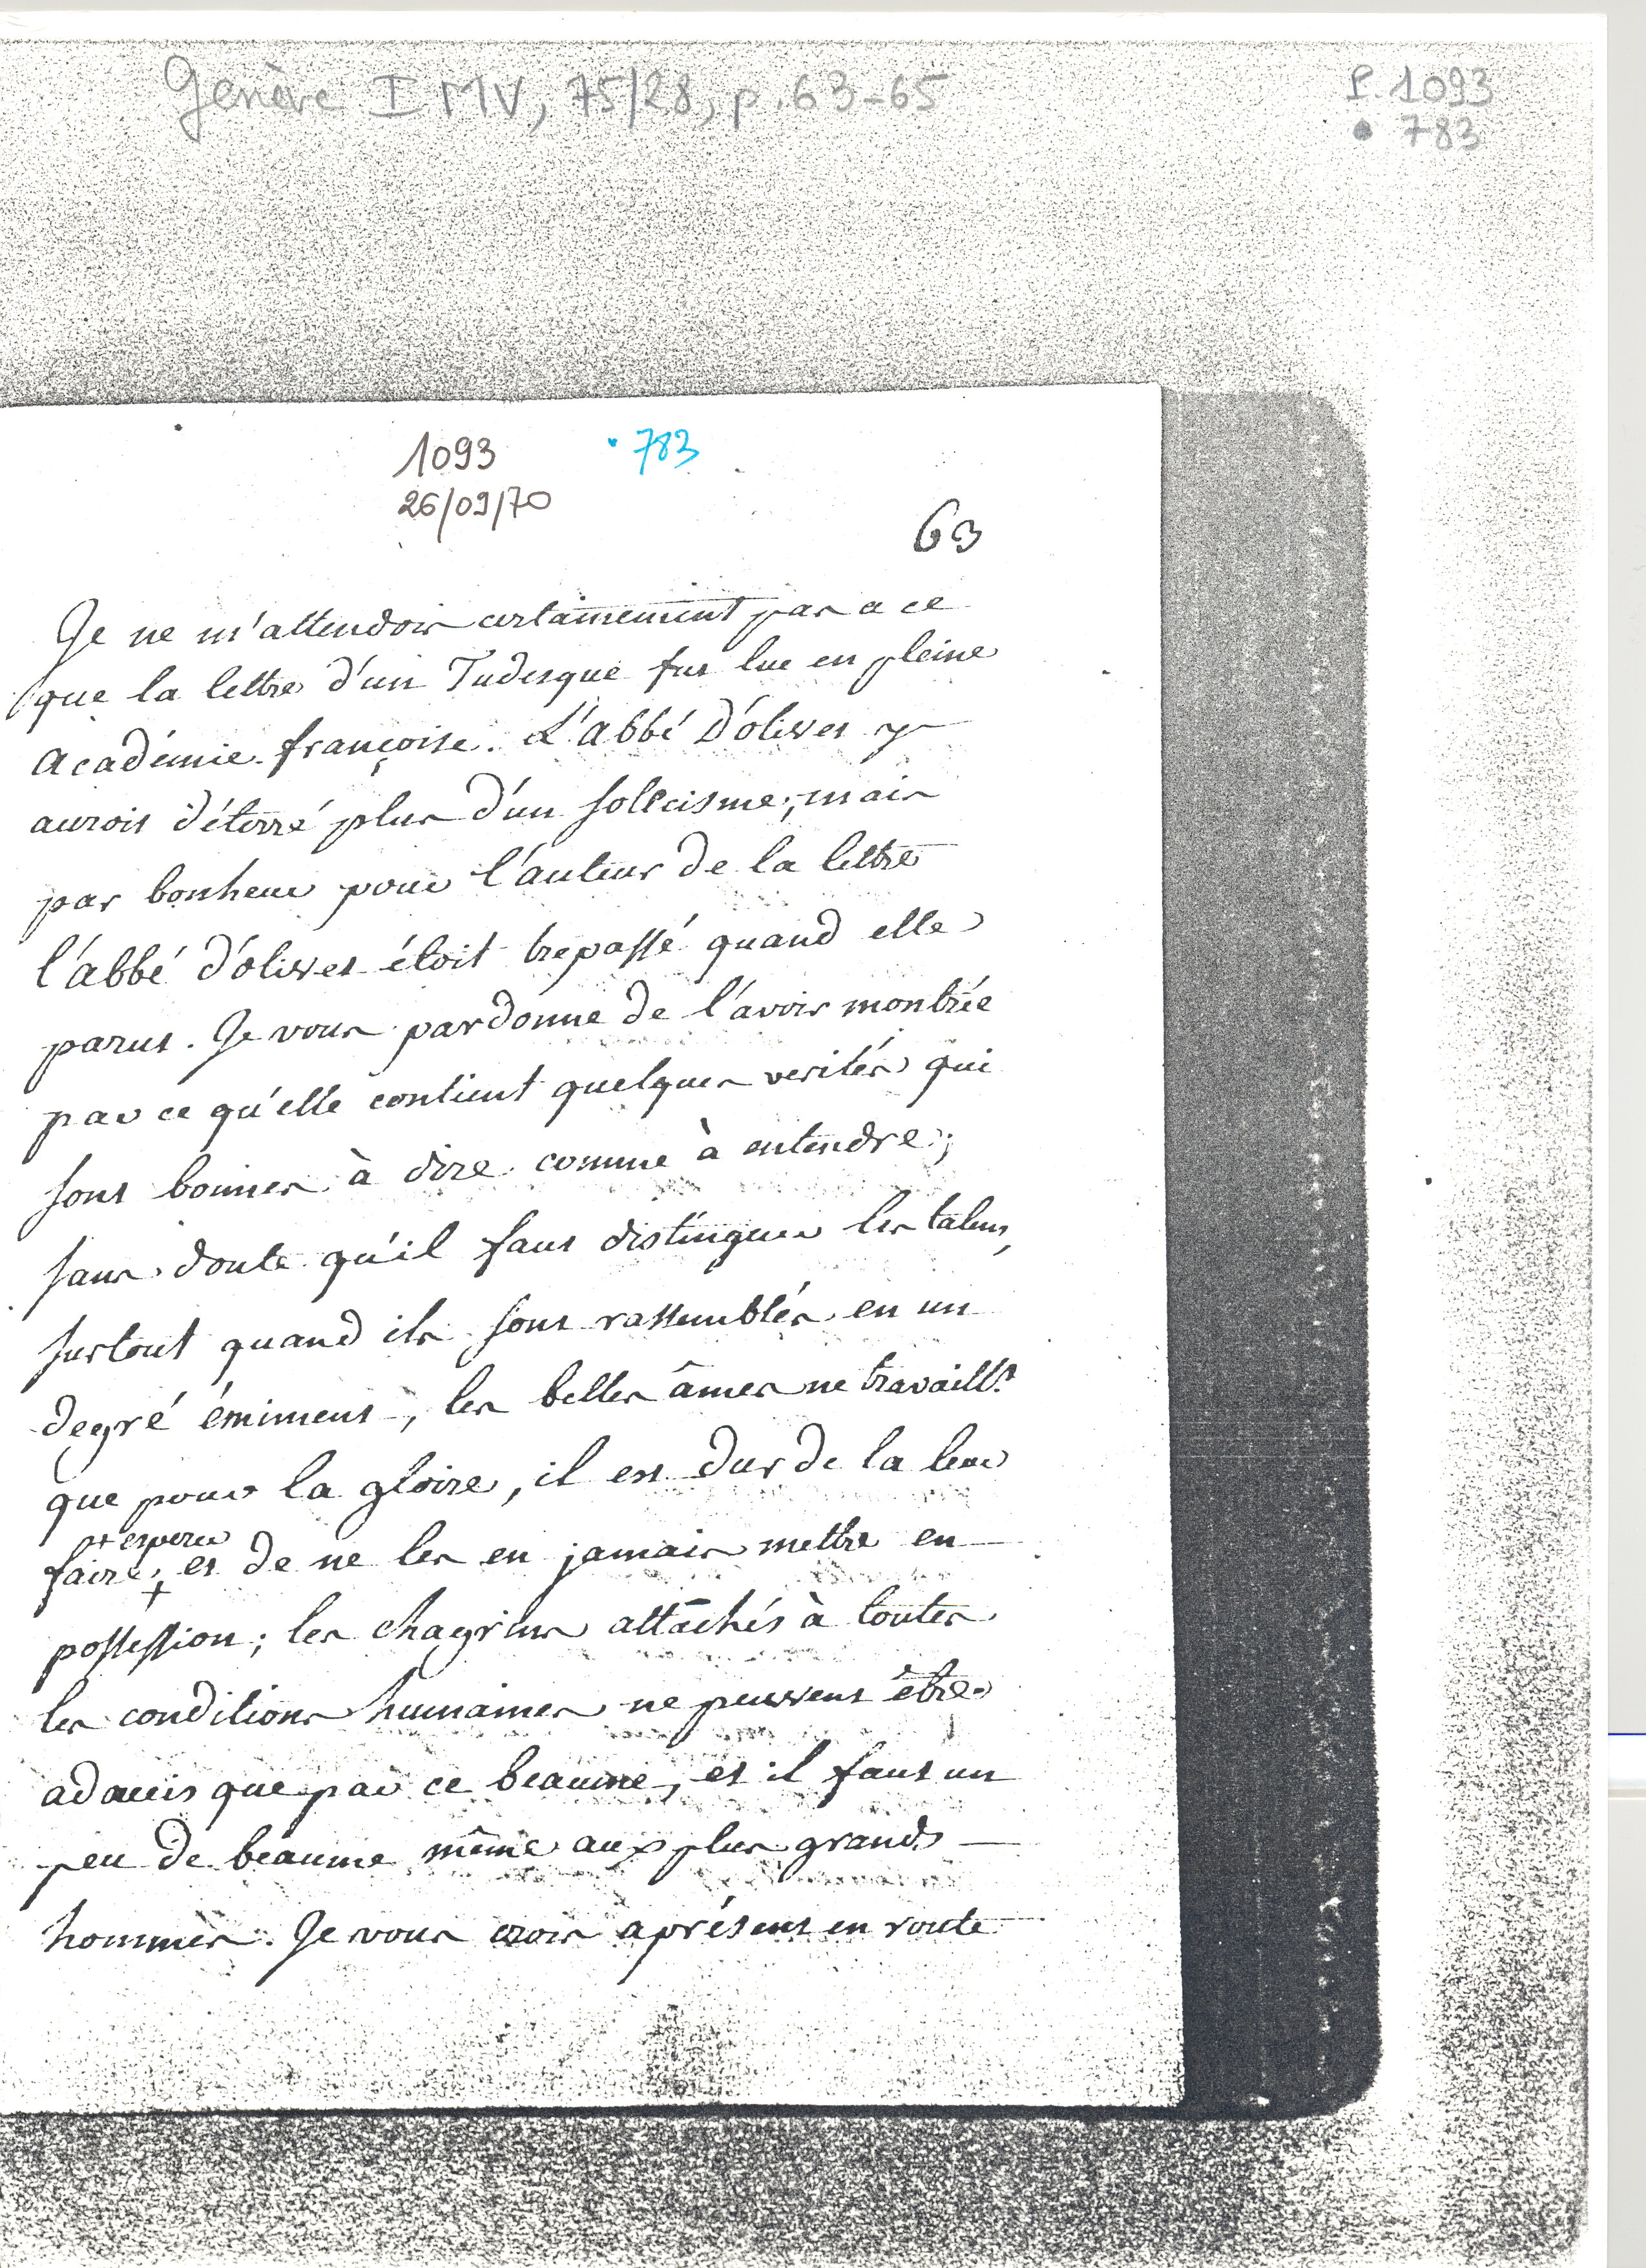 Genève IMV, 75/28, p. 63-65
P. 1093
• 783
1093
• 783
26/09/70
63
Je ne m'attendois certainement pas a ce
que la lettre d'un Tudesque fut lue en pleine
académie françoise. L'abbé D'olivet y
auroit déterré plus d'un solécisme; mais
par bonheur pour l'auteur de la lettre
l'abbé d'olivet étoit trepassé quand elle
parut. Je vous pardonne de l'avoir montrée
par ce qu'elle contient quelques verités qui
sont bonnes à dire comme à entendre;
sans doute qu'il faut distinguer les talens,
surtout quand ils sont rassemblés en un
degré éminent, les belles âmes ne travaill.t
que pour la gloire, il est dur de la leur
+ esperer
faire, + et de ne les en jamais mettre en
possession; les chagrins attachés à toutes
les conditions humaines ne peuvent être
adoucis que par ce beaume, et il faut un
peu de beaume même aux plus grands
hommes. Je vous crois aprésent en route